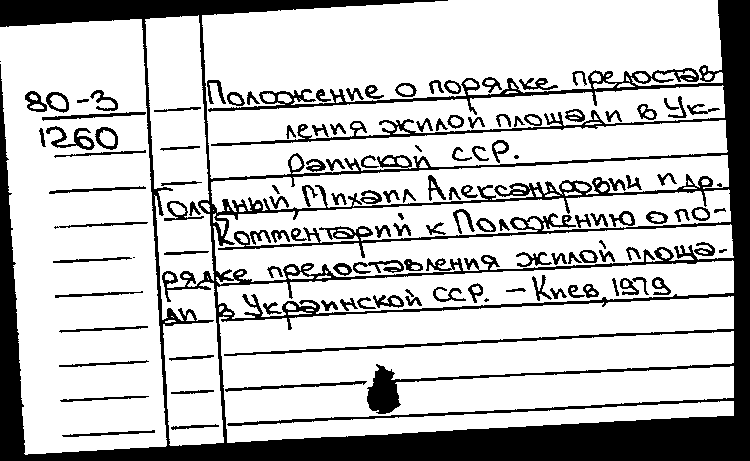 80-3
1260
Положение о порядке предостав-
ления жилой площади в Ук-
раинской ССР.
Голодный, Михаил Александрович и др.
Комментарий к Положению о по-
рядке предоставления жилой площа-
ди в Украинской ССР. – Киев, 1979.